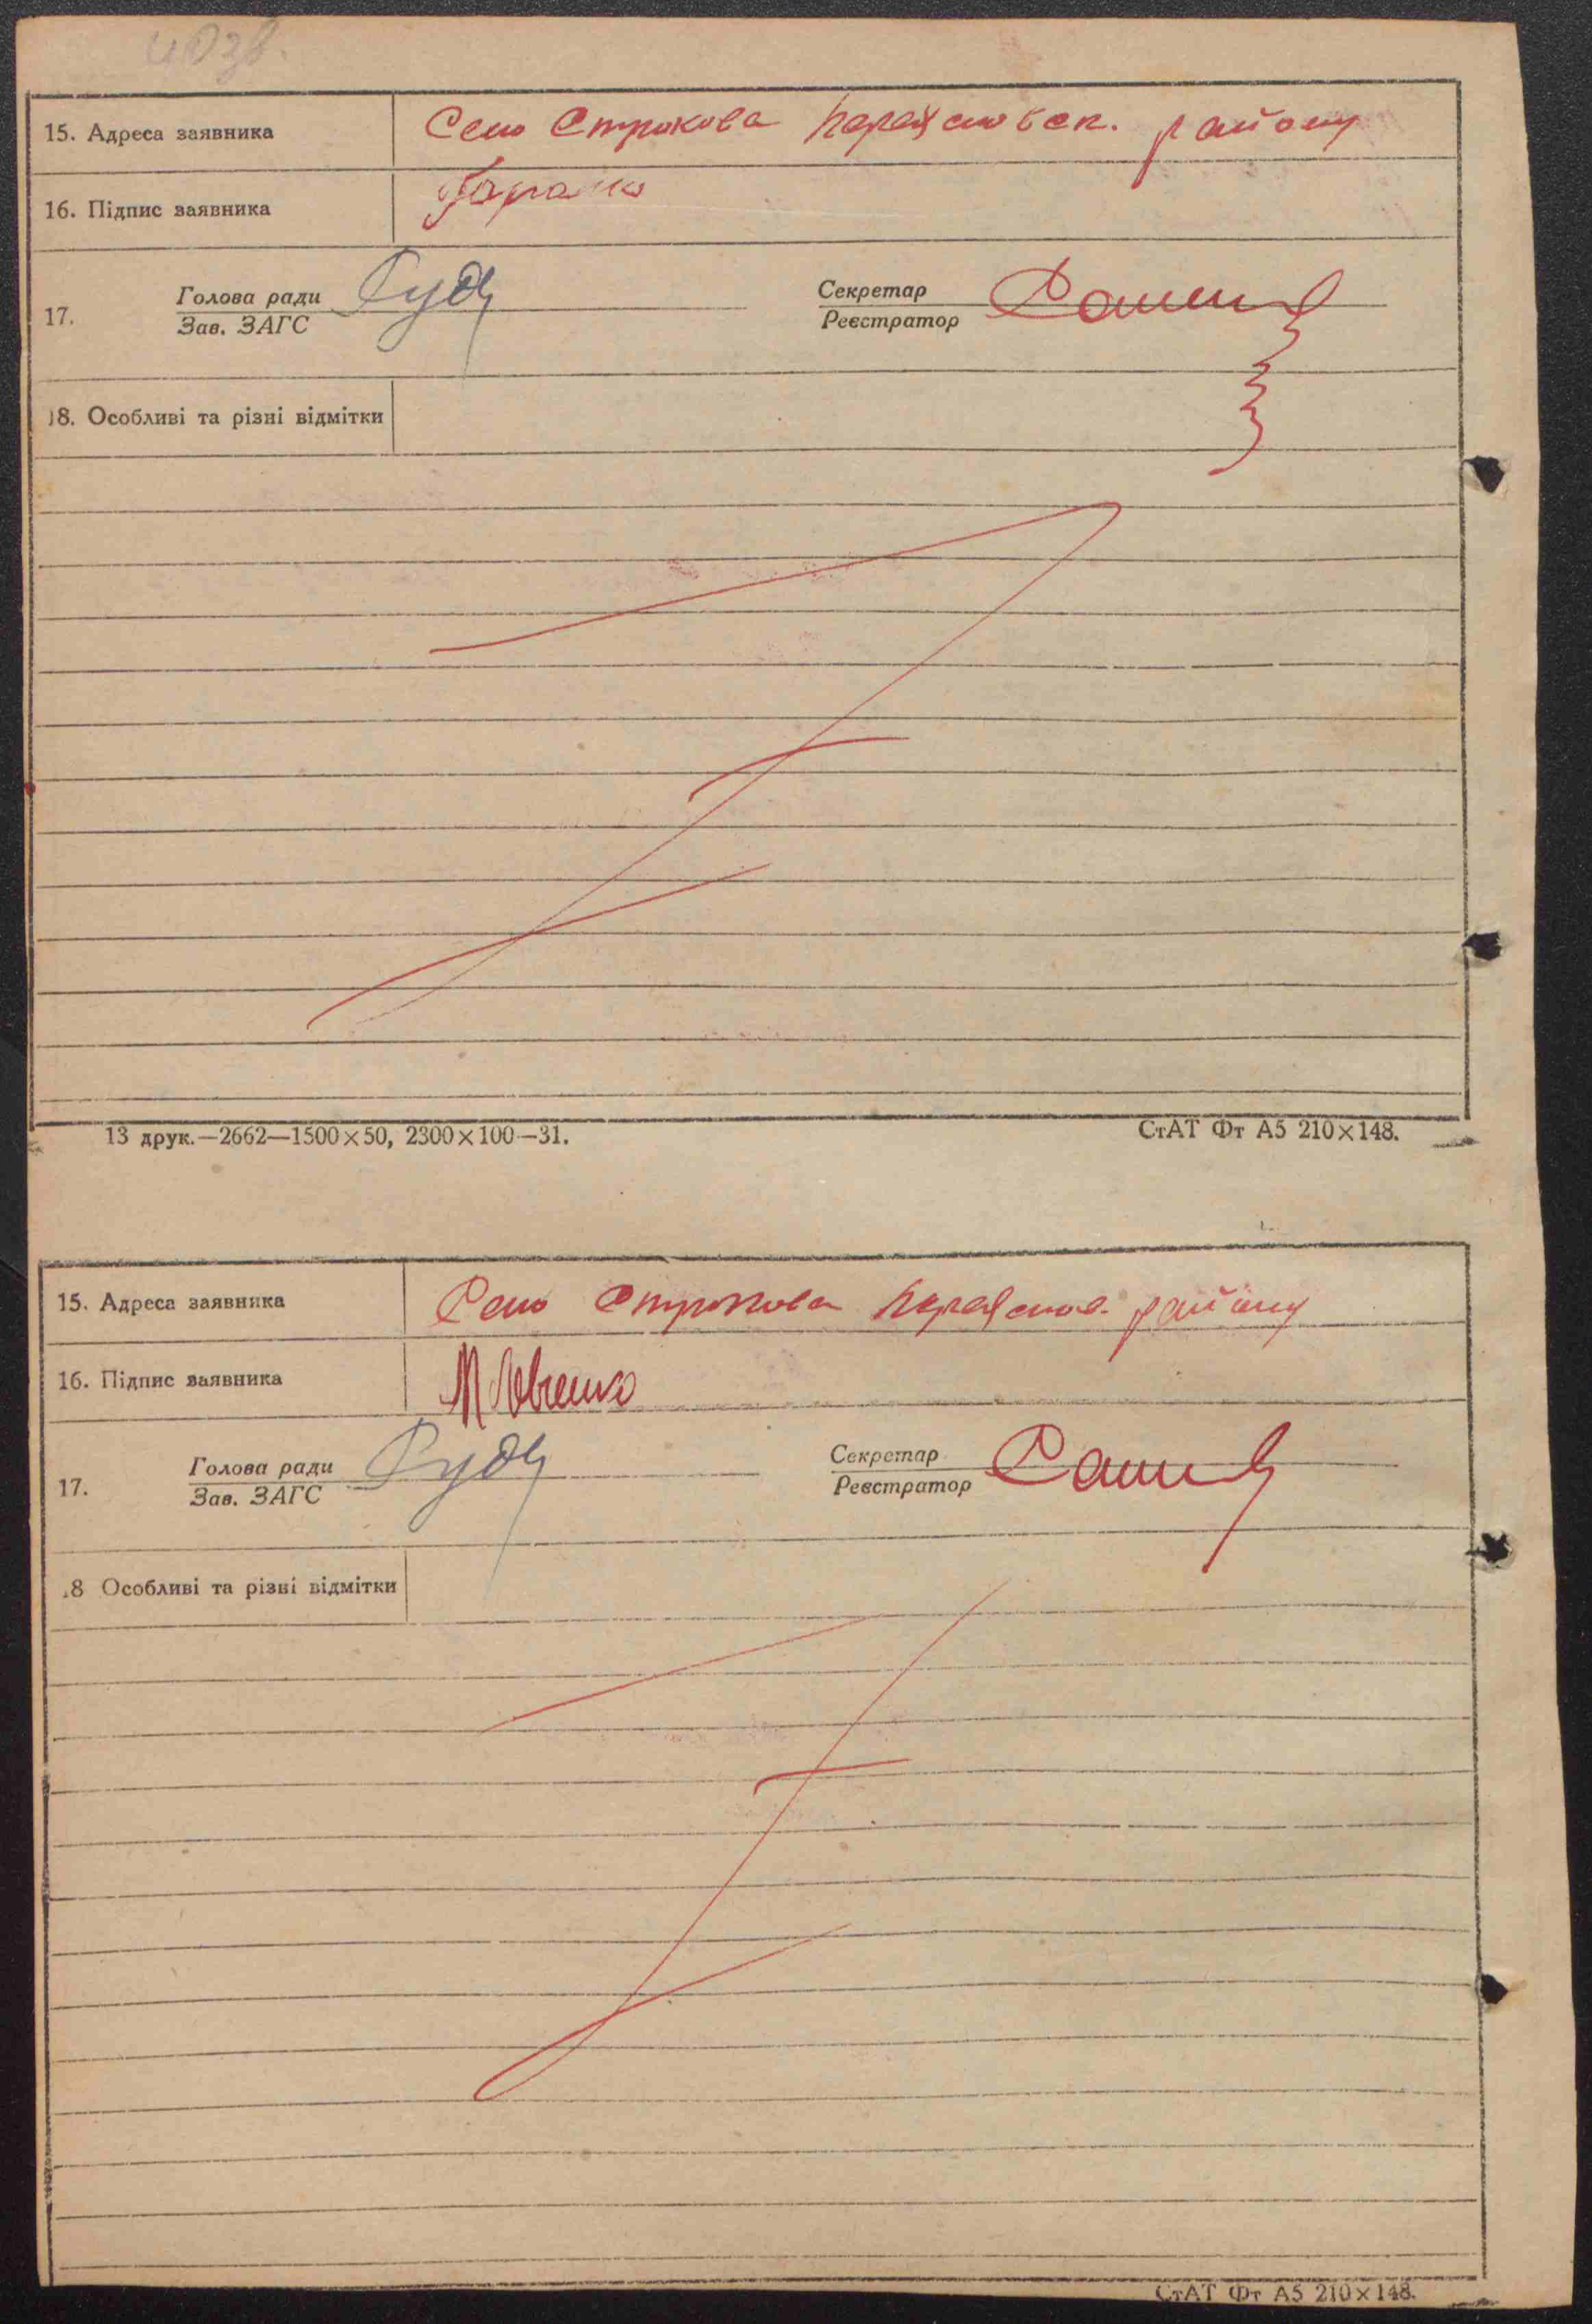 15. Адреса заявника Село Строкова району
16. Підпис заявника
17. Голова ради Зав. ЗАГС Рудь Секретар Реєстратор
18. Особливі та різні відмітки
13 друк.—2662—1500×50, 2300×100—31. СтАТ Фт А5 210×148.
15. Адреса заявника Село Строкова району
16. Підпис заявника
17. Голова ради Зав. ЗАГС Рудь Секретар Реєстратор
18 Особливі та різні відмітки
СтАТ Фт А5 210×148.